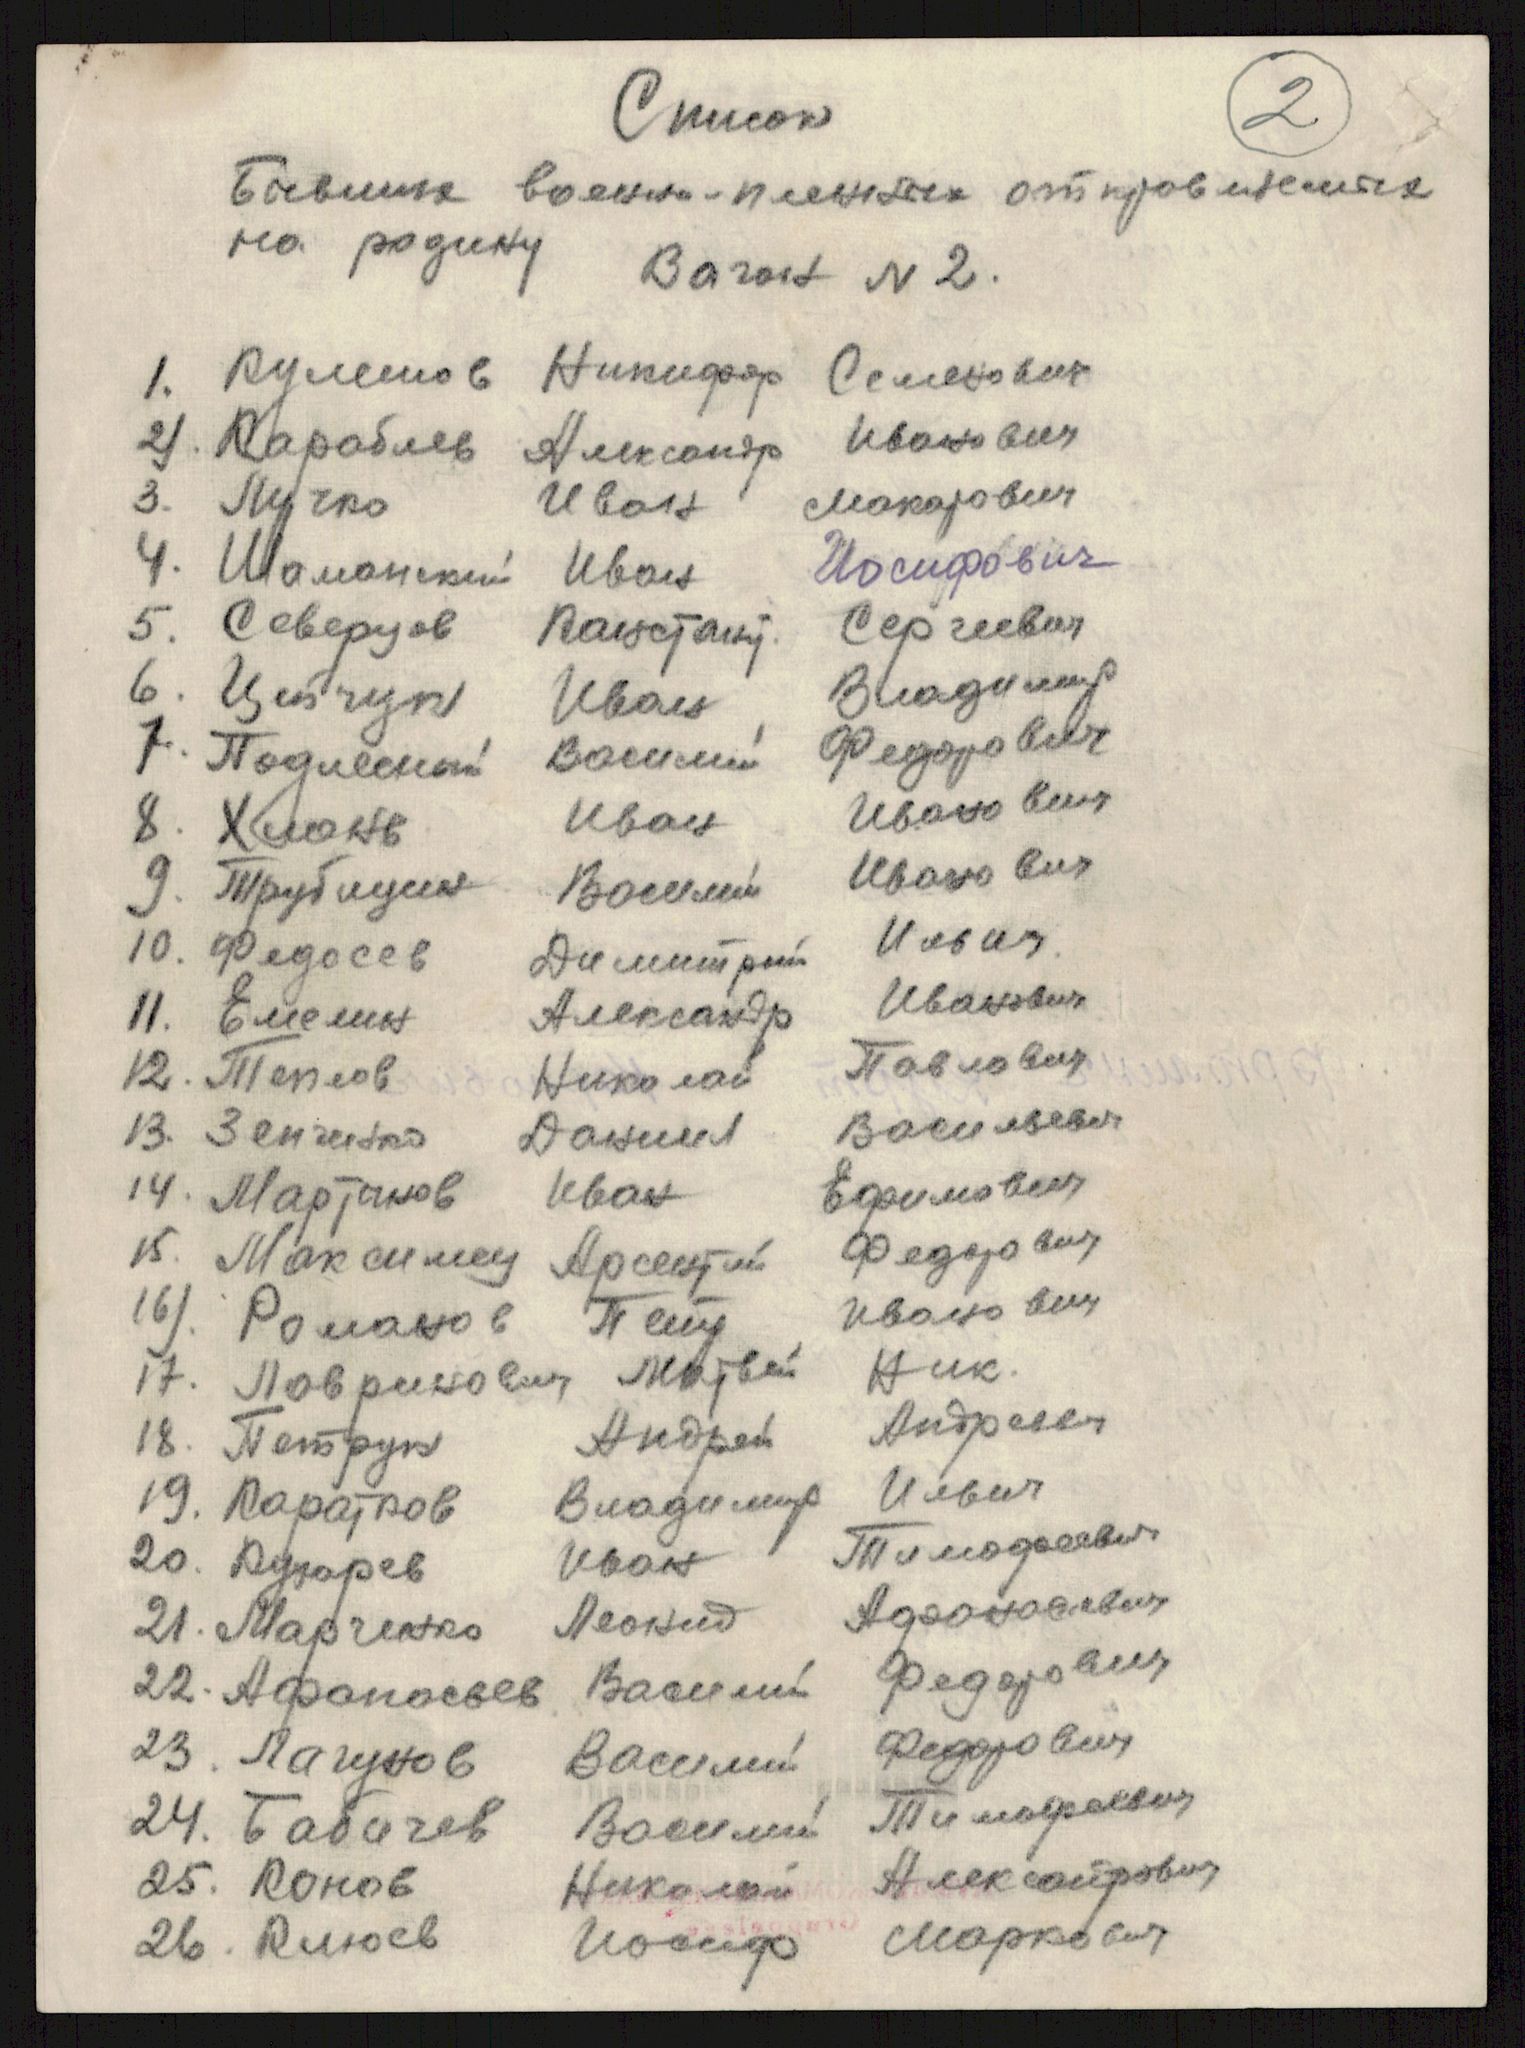 2
Список
Бывших военно-пленных отправляемых
на родину
Вагон N 2.
1. Кулешов Никифор Семенович
2). Караблев Александр Иванович
3. Лучко Иван Макарович
4. Шаманский Иван Иосифович
5. Северцов Констант. Сергеевич
6. Ципчук Иван Владимир
7. Подлесный Василий Федорович
8. Хмань Иван Иванович
9. Трубицин Василий Иванович
10. Федосев Димитрий Ильич.
11. Емелин Александр Иванович
12. Теплов Николай Павлович
13. Зенченко Даниил Васильевич
14. Мартынов Иван Ефимович
15. Максимец Арсентий Федорович
16). Романов Петр Иванович
17. Лавринович Матвей Ник.
18. Петрук Андрей Андреевич
19. Каратков Владимир Ильич
20. Иван Тимофеевич
21. Марченко Леонид Афанасевич
22. Афанасьев Василий Федорович
23. Лагунов Василий Федорович
24. Бабичев Василий Тимофеевич
25. Конов Николай Александрович
26. Клюев Иосиф Маркович